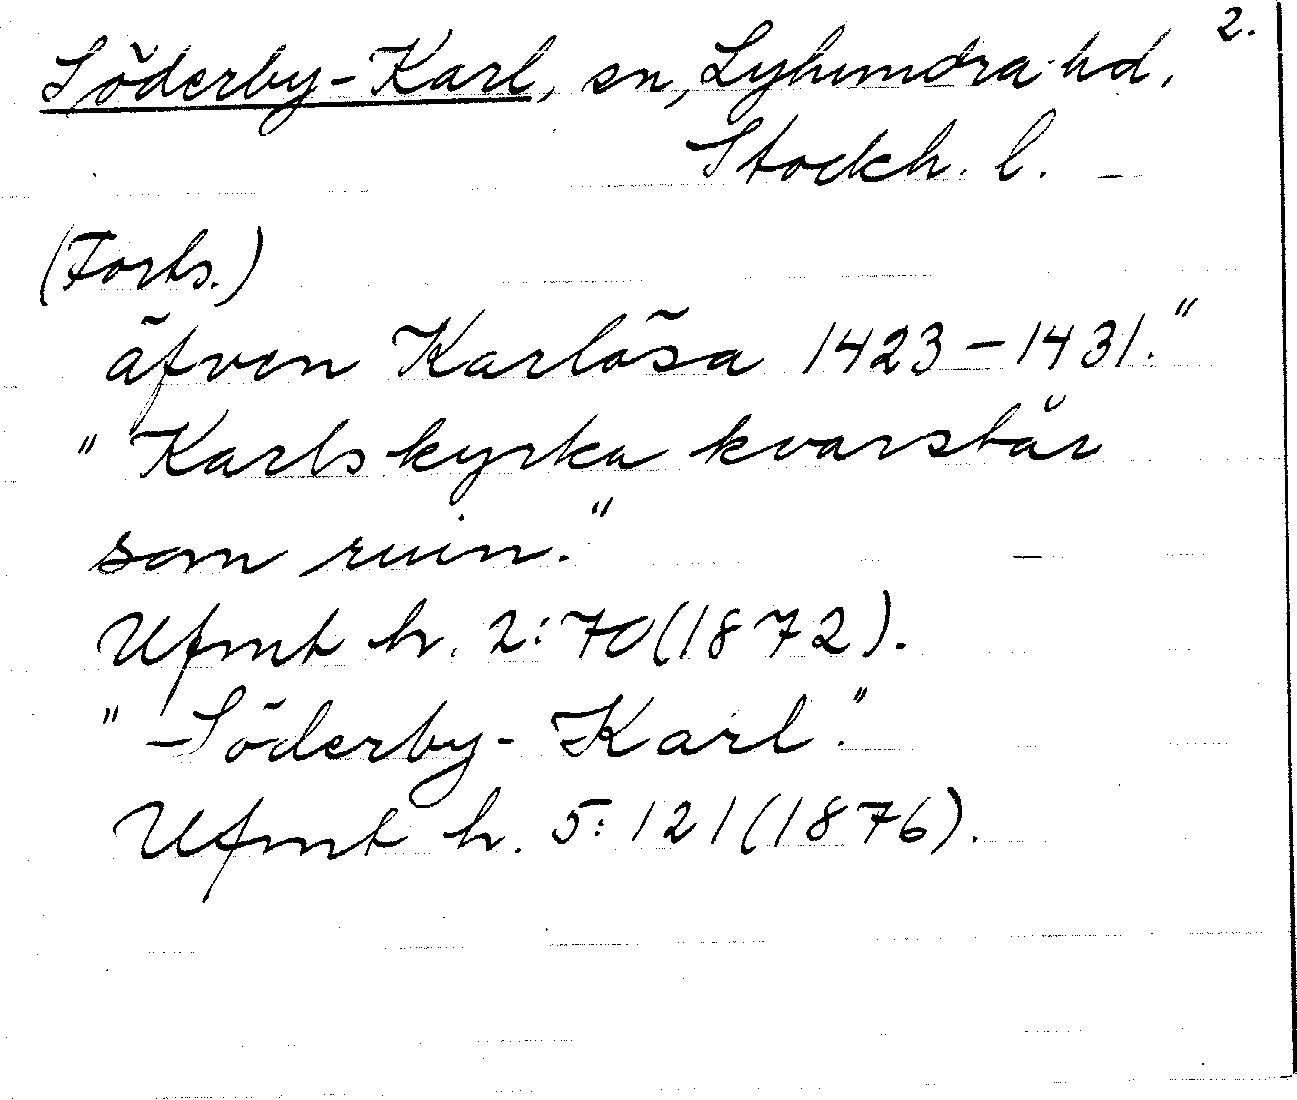 2.
Söderby-Karl, sn, Lyhundra hd,
Stockh. l.
(Forts.)
äfven Karlösa 1423-1431."
"Karlskyrka kvarstår
som ruin."
Ufmt h. 2:70(1872).
"-Söderby-Karl."
Ufmt h. 5:121(1876).